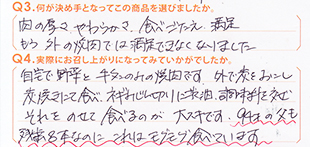 Q3.何が決め手となってこの商品を選びましたか。
肉の厚さ、やわらかさ、食べごたえ、満足
もう外の焼肉では満足できなくなりました
Q4.実際にお召し上がりになってみていかがでしたか。
自宅で野菜と牛タンのみの焼肉です 外で炭をおこし
炭焼きにして食べ、ネギみじん切りに醤油、調味料を交ぜ
それをのせて食べるのが大スキです。
は これはモグモグ食べています